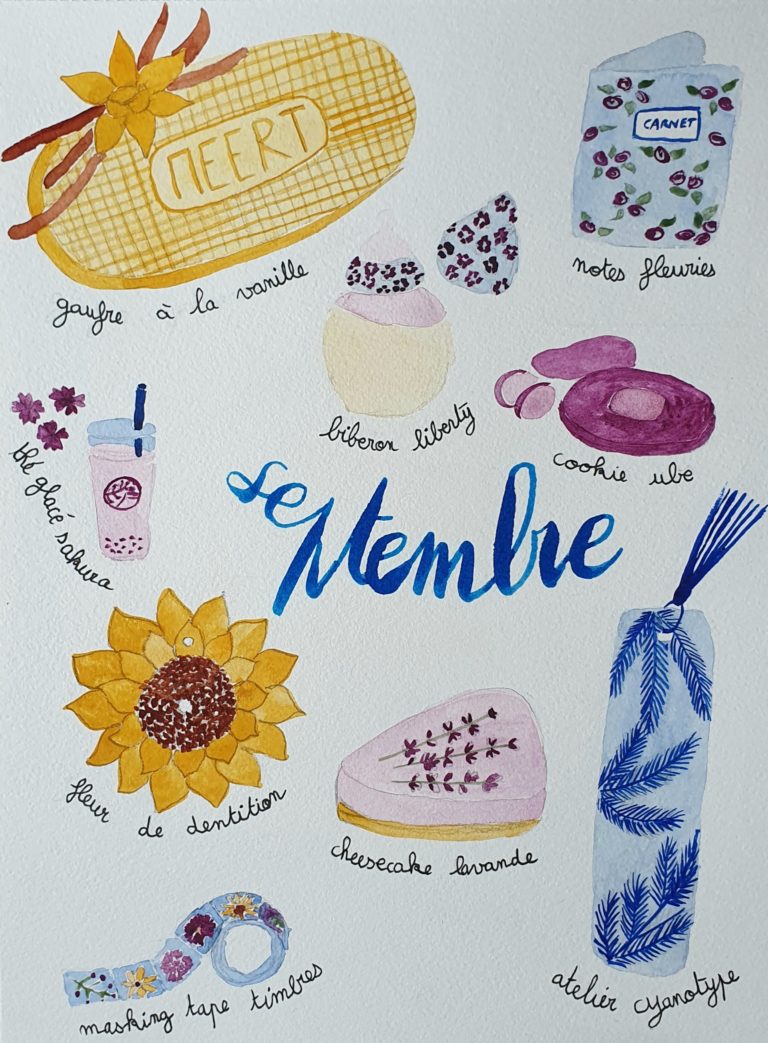 MEERT
CARNET
gaufre à la vanille
notes fleuries
biberon liberty
cookie ube
thé glacé sakura
Septembre
fleur de dentition
cheesecake lavande
masking tape timbres
atelier cyanotype